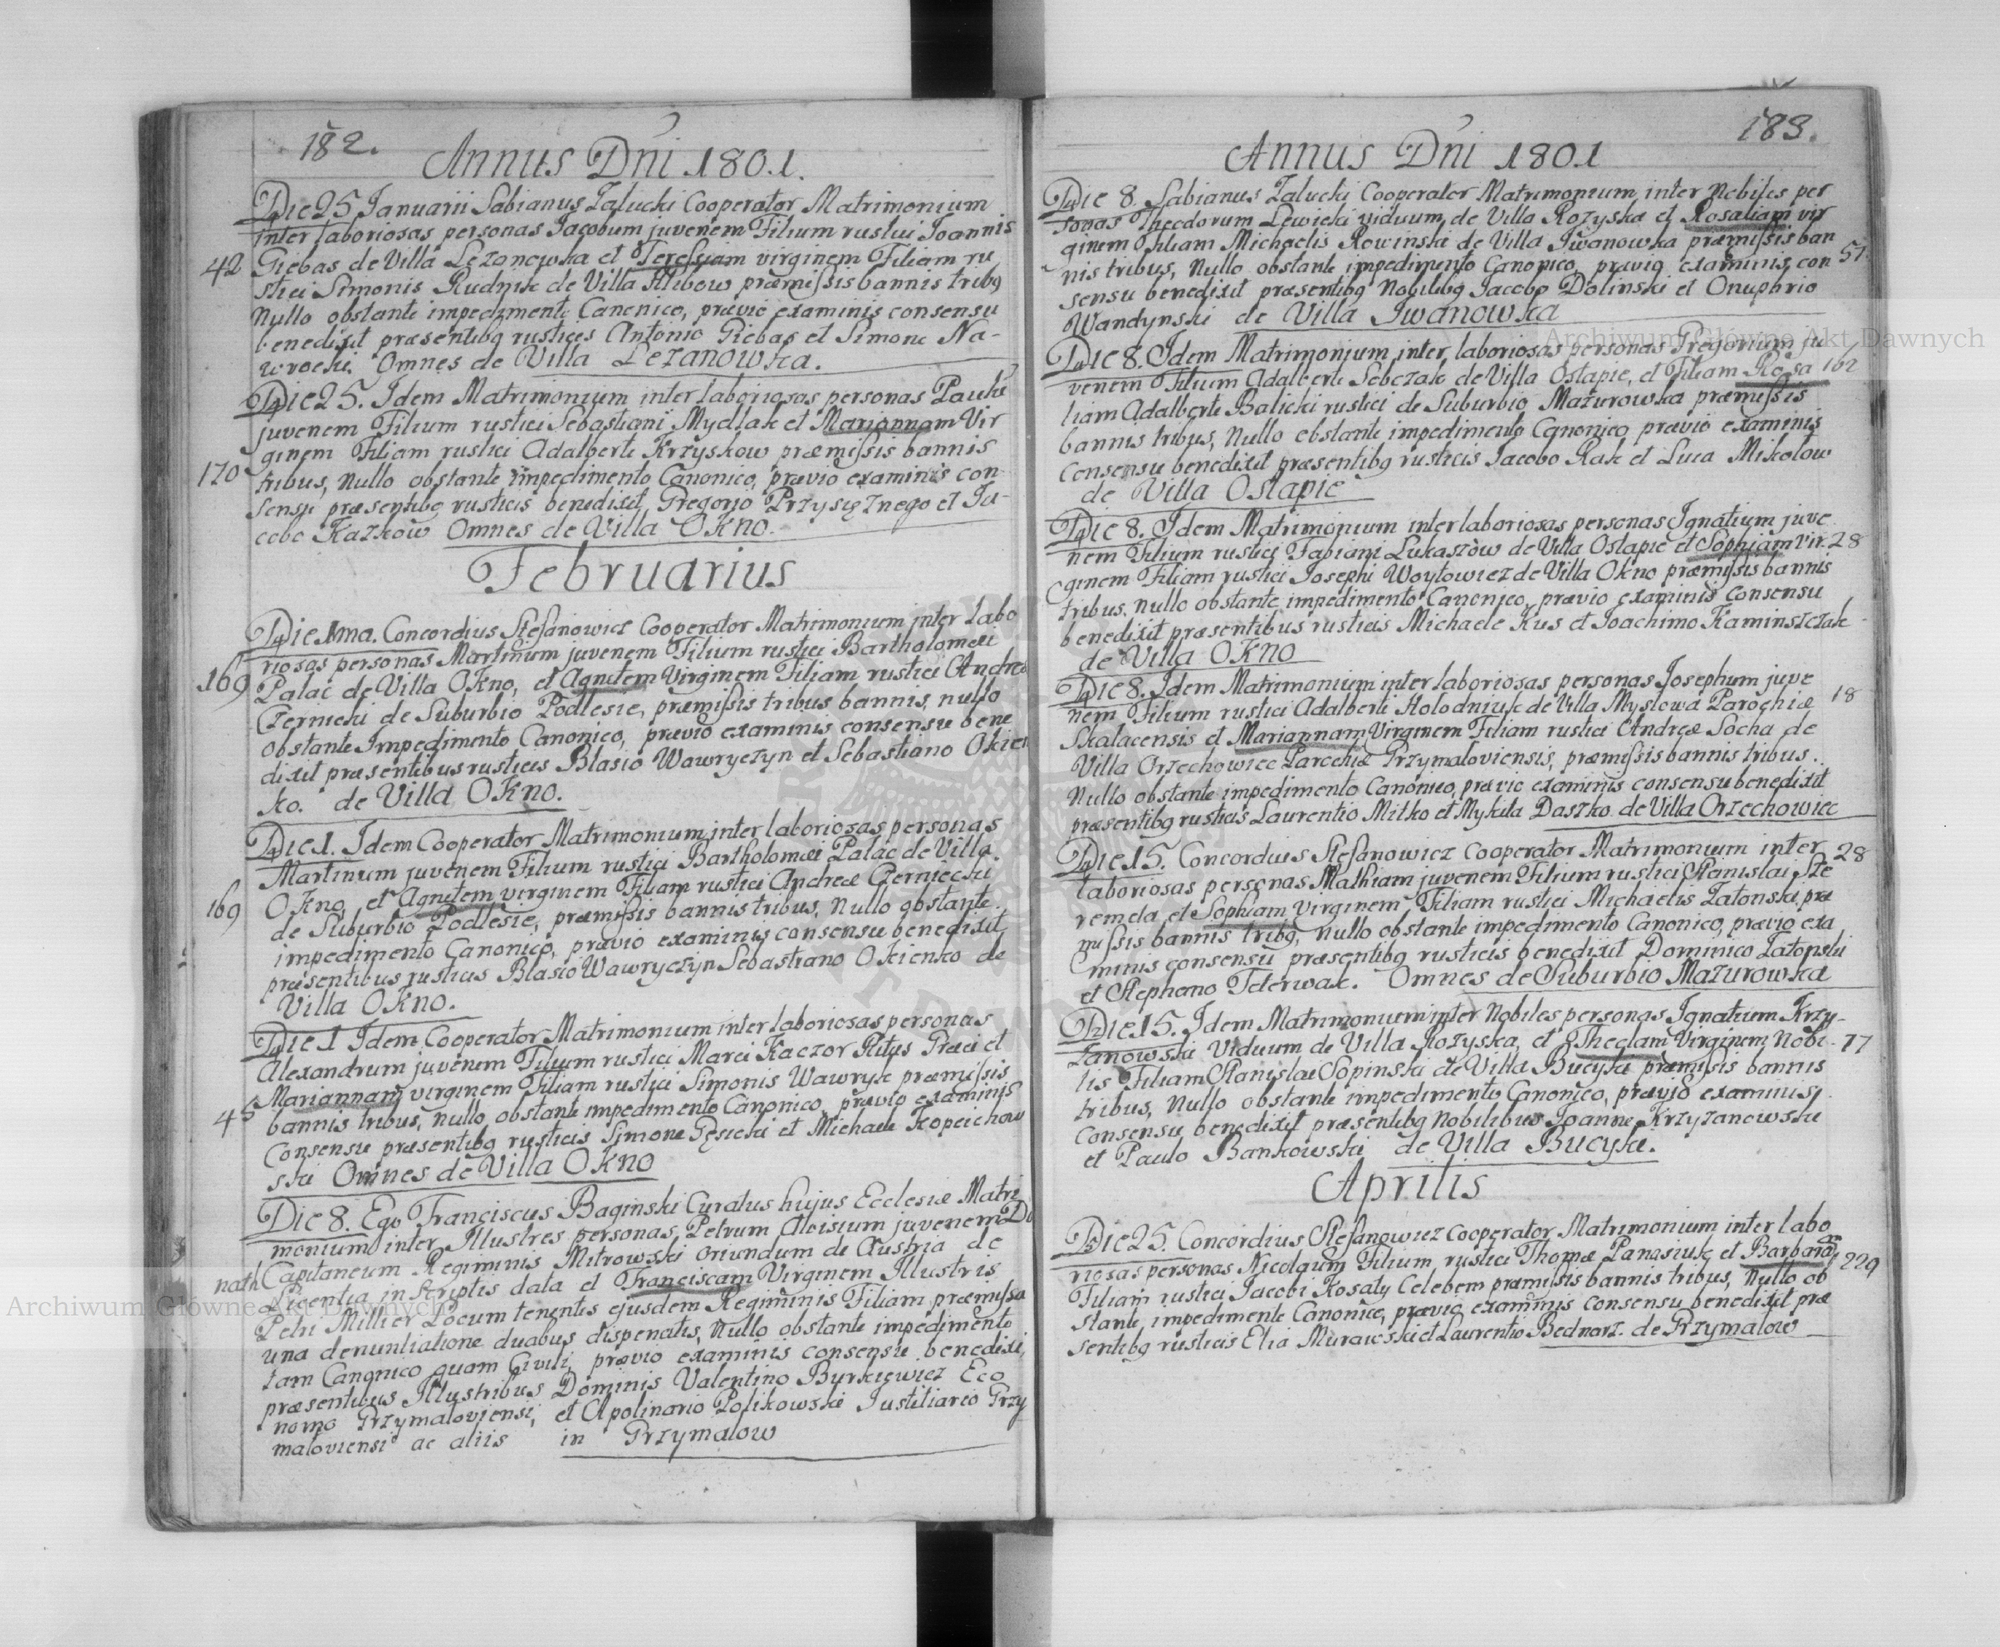 182.
Annus Dni 1801.
Die 25 Januarii Sabianus Zalucki Cooperator Matrimonium
inter laboriosas personas Jacobum juvenem Filium rustici Joannis
42 Giebas de Villa Lezanowka et Teressiam virginem Filiam ru
stici Simonis Rudnik de Villa Hlibow præmissis bannis tribq
Nullo obstante impedimento Canonico, prævio examinis consensu
benedixit præsentibq rusticis Antonio Giebas et Simone Na-
wrocki Omnes de Villa Lezanowka.
Die 25. Idem Matrimonium inter laboriosas personas Pauli
juvenem Filium rustici Sebastiani Mydlak et Mariannam Vir
ginem Filiam rustici Adalberti Krzyskow præmissis bannis
170 tribus, Nullo obstante impedimento Canonico, prævio examinis con-
sensu præsentibq rusticis benedixit Gregorio Przysięznego et Ja-
cobo Kazkow Omnes de Villa Okno.
Februarius
Die 1ma. Concordius Stefanowicz Cooperator Matrimonium inter labo
riosas personas Martinum juvenem Filium rustici Bartholomei
169 Palac de Villa Okno, et Agnetem Virginem Filiam rustici Andreæ
Czernicki de Suburbio Podlesie, præmissis tribus bannis, nullo
obstante Impedimento Canonico, prævio examinis consensu bene
dixit præsentibus rusticis Blasio Wawryczyn et Sebastiano Okien
ko. de Villa Okno.
Die 1. Idem Cooperator Matrimonium inter laboriosas personas
Martinum juvenem Filium rustici Bartholomei Palac de Villa
169 Okno, et Agnetem virginem Filiam rustici Andreæ Czerniecki
de Suburbio Podlesie, præmissis bannis tribus, Nullo obstante
impedimento Canonico, prævio examinis consensu benedixit
præsentibus rusticis Blasio Wawryczyn Sebastiano Okienko de
Villa Okno.
Die 1 Idem Cooperator Matrimonium inter laboriosas personas
Alexandrum juvenem Filium rustici Marci Kaczor Ritus Græci et
Mariannam virginem Filiam rustici Simonis Wawryk præmissis
45 bannis tribus, nullo obstante impedimento Canonico, prævio examinis
Consensu præsentibq rusticis Simone Gęsicki et Michaele Kopcichow
ski Omnes de Villa Okno
Die 8. Ego Franciscus Baginski Curatus hujus Ecclesiæ Matri
monium inter Illustres personas, Petrum Aloisium juvenem
Capitaneum Regiminis Mitrowski oriundum de Austria de
nath Licentia in Scriptis data et Franciscam Virginem Illustris
Petri Millier Locum tenentis ejusdem Regiminis Filiam præmissa
una denuntiatione duabus dispenatis, Nullo obstante impedimento
tam Canonico quam Civili, prævio examinis consensu benedixi,
præsentibus Illustribus Dominis Valentino Byrkiewicz Eco
nomo Grzymaloviensi, et Apolinario Posikowski Justitiario Grzy
maloviensi ac aliis in Grzymalow
183.
Annus Dni 1801
Die 8. Sabianus Zalucki Cooperator Matrimonium inter Nobiles per
sonas Theodorum Lewicki viduum, de Villa Rozyska et Rosaliam vir
ginem Filiam Michaelis Rowinski de Villa Iwanowka præmissis ban
nis tribus, Nullo obstante impedimento Canonico, prævio examinis con 57
sensu benedixit præsentibq Nobilibq Jacobo Dolinski et Onuphrio
Wandynski de Villa Iwanowka
Die 8. Idem Matrimonium inter laboriosas personas Gregorium ju
venem Filium Adalberti Sobczak de Villa Ostapie, et Filiam Rosa 162
liam Adalberti Balicki rustici de Suburbio Mazurowka præmissis
bannis tribus, Nullo obstante impedimento Canonico prævio examinis
Consensu benedixit præsentibq rusticis Jacobo Rak et Luca Mikolow
de Villa Ostapie
Die 8. Idem Matrimonium inter laboriosas personas Ignatium juve
nem Filium rustici Fabiani Lukaszow de Villa Ostapie et Sophiam Vir 28
ginem Filiam rustici Josephi Woytowicz de Villa Okno præmissis bannis
tribus, nullo obstante impedimento Canonico, prævio examinis consensu
benedixit præsentibus rusticis Michaele Kus et Joachimo Kaminszczak
de Villa Okno
Die 8. Idem Matrimonium inter laboriosas personas Josephum juve
nem Filium rustici Adalberti Holodniuk de Villa Myslowa Parochiæ 18
Skalacensis et Mariannam Virginem Filiam rustici Andreæ Socha de
Villa Orzechowiec Parochiæ Grzymaloviensis, præmissis bannis tribus.
Nullo obstante impedimento Canonico, prævio examinis consensu benedixit
præsentibq rusticis Laurentio Mitko et Mykita Daszko de Villa Orzechowiec
Die 15. Concordius Stefanowicz Cooperator Matrimonium inter 28
laboriosas personas Mathiam juvenem Filium rustici Stanislai Ste
remela et Sophiam Virginem Filiam rustici Michaelis Zatonski præ
missis bannis tribq, nullo obstante impedimento Canonico, prævio exa
minis consensu præsentibq rusticis benedixit Dominico Zatonski
et Stephano Teterwak. Omnes de Suburbio Mazurowka
Die 15. Idem Matrimonium inter Nobiles personas Ignatium Krzy-
zanowski Viduum de Villa Rozyska, et Theclam Virginem Nobi- 77
lis Filiam Stanislai Sopinski de Villa Bucyki præmissis bannis
tribus, Nullo obstante impedimento Canonico, prævio examinis
Consensu benedixit præsentibq Nobilibus Joanne Krzyzanowski
et Paulo Bankowski de Villa Bucyke.
Aprilis
Die 25. Concordius Stefanowicz Cooperator Matrimonium inter labo
riosas personas Nicolaum Filium, rustici Thomæ Panasiuk et Barbaram 229
Filiam rustici Jacobi Kosaty Celebem præmissis bannis tribus, Nullo ob
stante, impedimento Canonico, prævio examinis consensu benedixit præ
sentibq rusticis Elia Murawski et Laurentio Bednarz. de Grzymalow
Archiwum Główne Akt Dawnych
Archiwum Główne Akt Dawnych